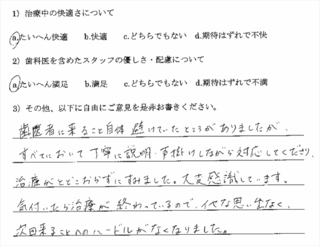 1）治療中の快適さについて
a.たいへん快適　b.快適　c.どちらでもない　d.期待はずれで不快
2）歯科医を含めたスタッフの優しさ・配慮について
a.たいへん満足　b.満足　c.どちらでもない　d.期待はずれで不満
3）その他、以下に自由にご意見を是非お書きください。
歯医者に来ること自体 避けていたところがありましたが、
すべてにおいて丁寧に説明・声掛けしながら対応してくださり、
治療がとどこおらずにすみました。大変感謝しています。
気付いたら治療が終わっているので、イヤな思いもなく、
次回来ることへのハードルがなくなりました。